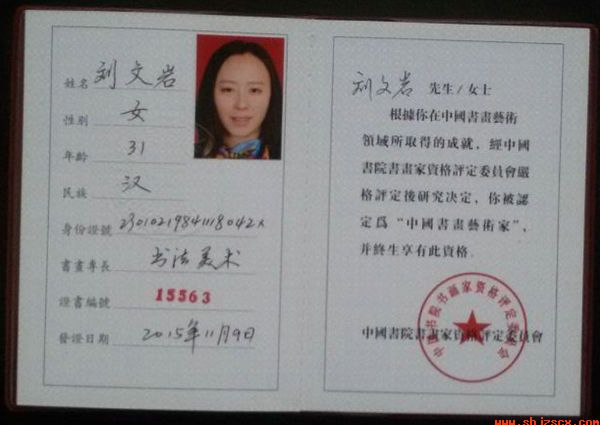 姓名 刘文岩
性別 女
年齡 31
民族 汉
身份證號 23010219841118042x
書畫專長 书法美术
證書編號 15563
發證日期 2015年11月9日
刘文岩 先生/女士
根據你在中國書畫藝術
領域所取得的成就，經中國
書院書畫家資格評定委員會嚴
格評定後研究決定，你被認
定爲“中國書畫藝術家”，
并終生享有此資格。
中國書院書畫家資格評定委員會
中国书院书画家资格评定委员会
www.shjzscx.com